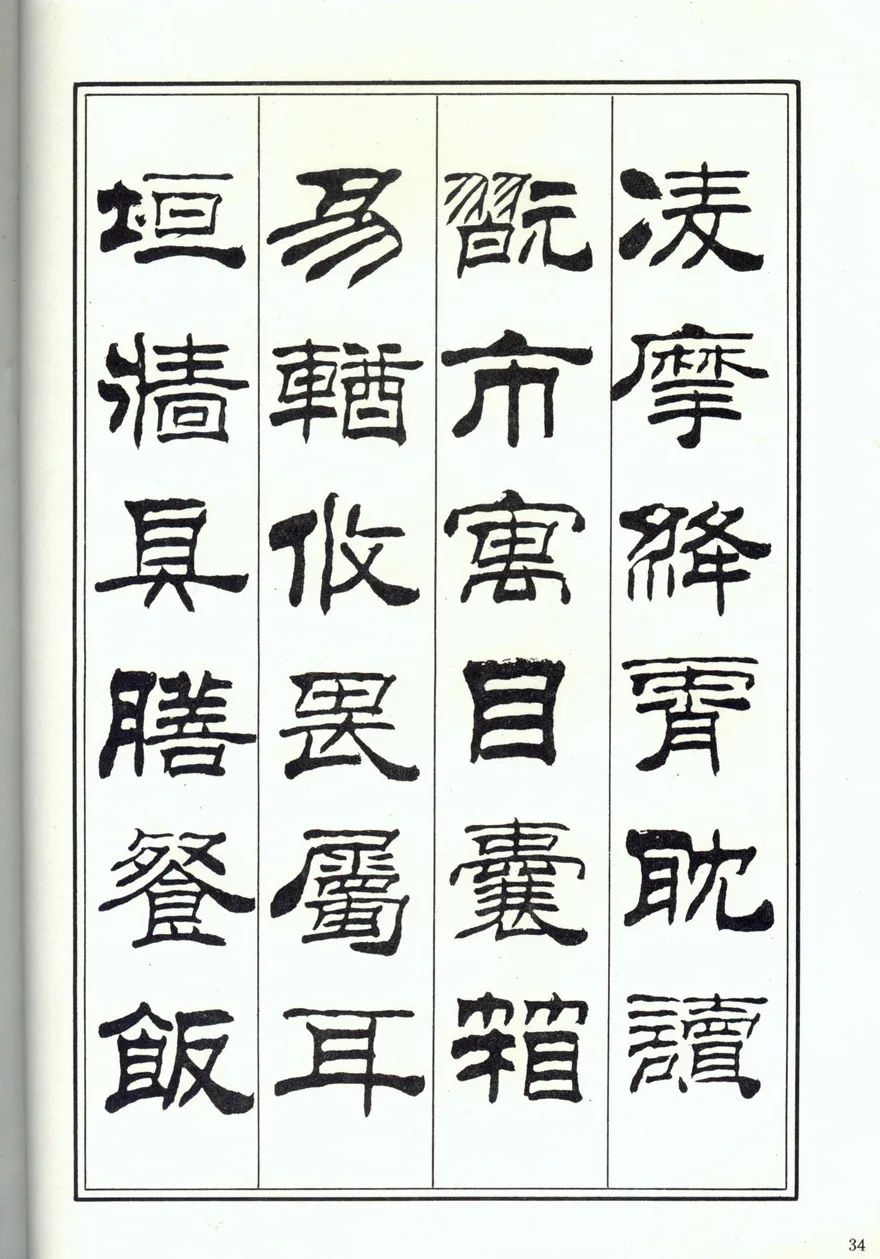 凌摩絳霄耽讀
翫市寓目囊箱
易輶攸畏屬耳
垣牆具膳餐飯
34